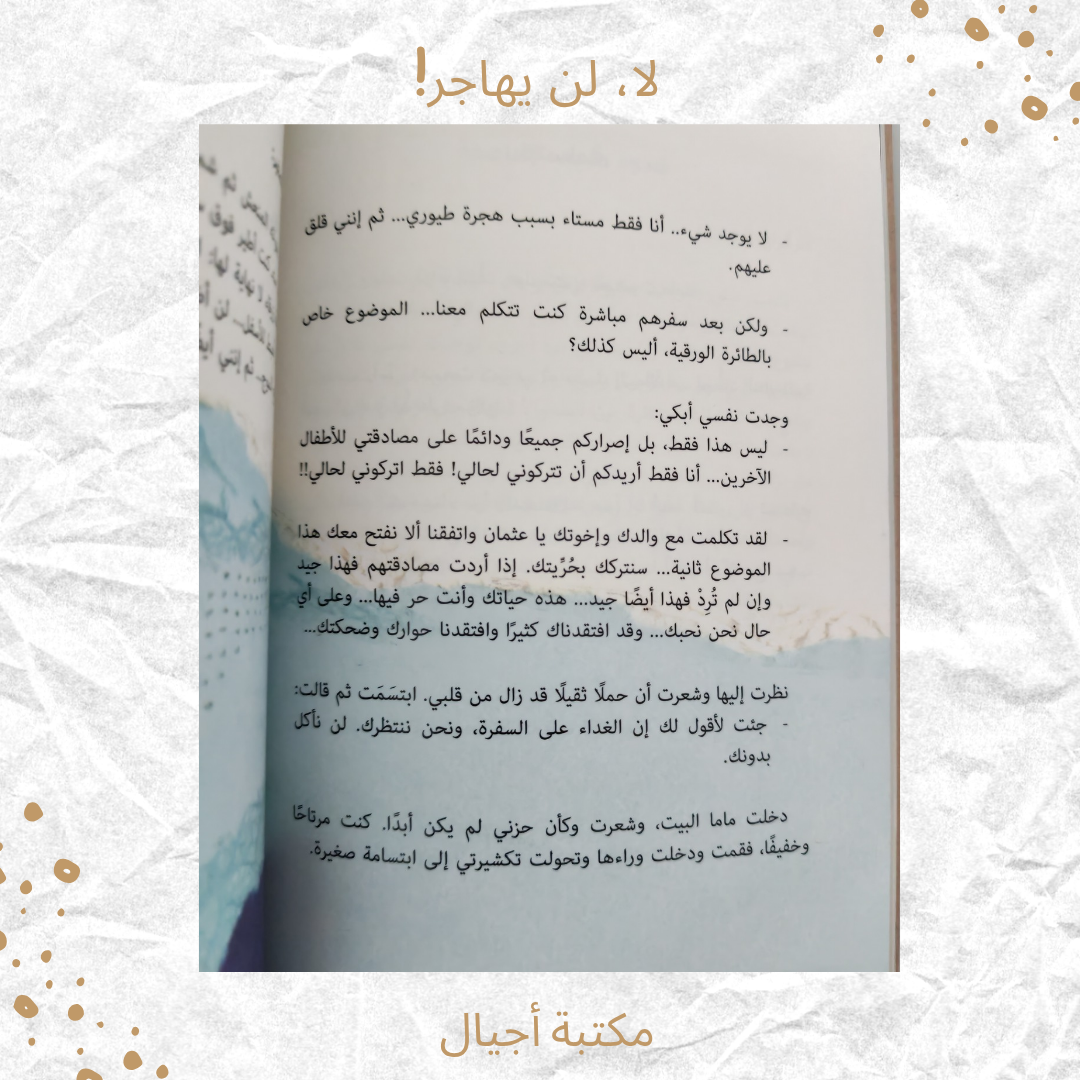 لا، لن يهاجر!
- لا يوجد شيء.. أنا فقط مستاء بسبب هجرة طيوري... ثم إنني قلق
عليهم.
- ولكن بعد سفرهم مباشرة كنت تتكلم معنا... الموضوع خاص
بالطائرة الورقية، أليس كذلك؟
وجدت نفسي أبكي:
- ليس هذا فقط، بل إصراركم جميعًا ودائمًا على مصادقتي للأطفال
الآخرين... أنا فقط أريدكم أن تتركوني لحالي! فقط اتركوني لحالي!!
- لقد تكلمت مع والدك وإخوتك يا عثمان واتفقنا ألا نفتح معك هذا
الموضوع ثانية... سنتركك بحُرِّيتك. إذا أردت مصادقتهم فهذا جيد
وإن لم تُرِدْ فهذا أيضًا جيد... هذه حياتك وأنت حر فيها... وعلى أي
حال نحن نحبك... وقد افتقدناك كثيرًا وافتقدنا حوارك وضحكتك...
نظرت إليها وشعرت أن حملًا ثقيلًا قد زال من قلبي. ابتسَمَت ثم قالت:
- جئت لأقول لك إن الغداء على السفرة، ونحن ننتظرك. لن نأكل
بدونك.
دخلت ماما البيت، وشعرت وكأن حزني لم يكن أبدًا. كنت مرتاحًا
وخفيفًا، فقمت ودخلت وراءها وتحولت تكشيرتي إلى ابتسامة صغيرة.
مكتبة أجيال